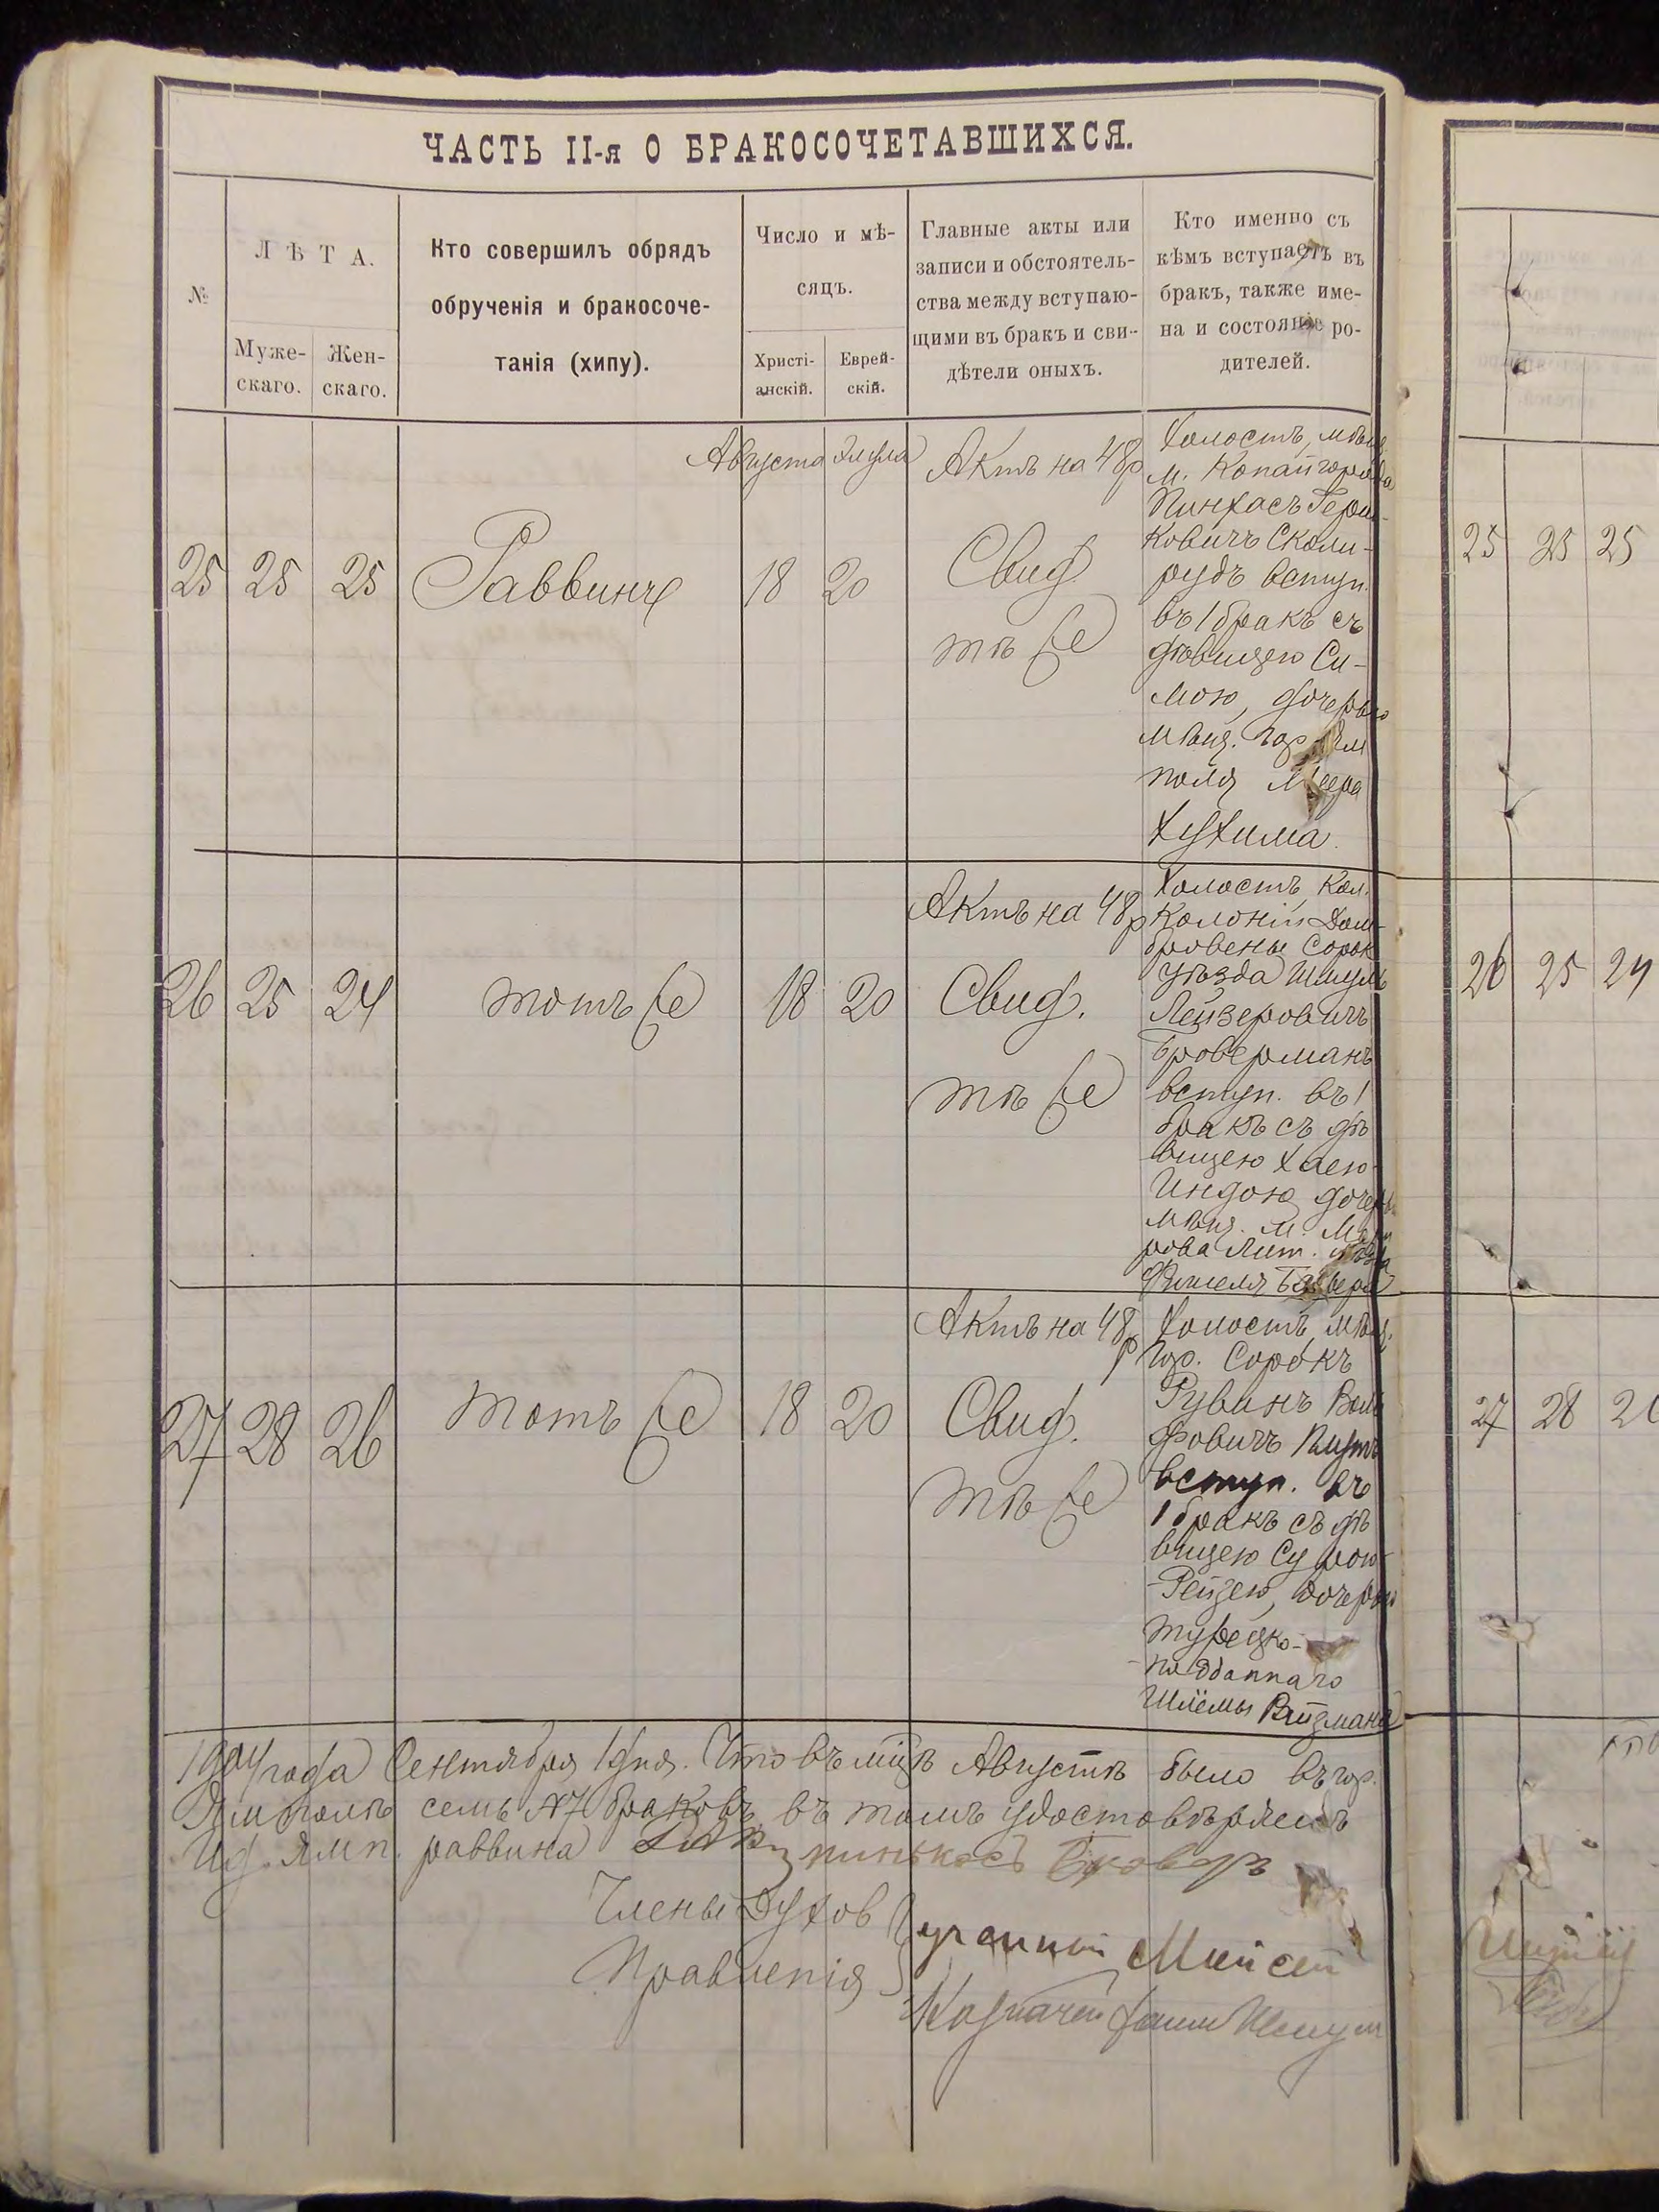 ЧАСТЬ II-я О БРАКОСОЧЕТАВШИХСЯ.
№
ЛѢТА.
Муже-
скаго.
Жен-
скаго.
Кто совершилъ обрядъ
обрученія и бракосоче-
танія (хипу).
Число и мѣ-
сяцъ.
Христі-
анскій.
Еврей-
скій.
Главные акты или
записи и обстоятель-
ства между вступаю-
щими въ бракъ и сви-
дѣтели оныхъ.
Кто именно съ
кѣмъ вступаетъ въ
бракъ, также име-
на и состояніе ро-
дителей.
Августа Элула
25 25 25 Раввинъ 18 20
Актъ на 48р
Свид
тѣ же
Холостъ, мѣщ
м. Копайгорода
Пинхасъ Герш-
ковичъ Сколи-
рудъ вступ.
въ 1 бракъ съ
дѣвицею Си-
мою, дочерью
мѣщ. гор. Ям
поля Меера
Хухима.
26 25 24 тотъ же 18 20
Актъ на 48р
Свид.
тѣ же
Холостъ, кол.
колоніи Дом-
бровены Сорок
уѣзда Шмуль
Лейзеровичъ
Броверманъ
вступ. въ 1
бракъ съ дѣ
вицею Хаею-
Индою дочерь
мѣщ. м.
рова Лит. уѣзда
Фишеля
27 28 26 тотъ же 18 20
Актъ на 48р
Свид.
тѣ же
Холостъ, мѣщ.
гор. Сорокъ
Рувинъ Воль
фовичъ
вступ. въ
1 бракъ съ дѣ
вицею Сурою-
Рейзею, дочерью
турецко-
подданнаго
Шлёмы Вайзмана
1904 года Сентября 1 дня. Что въ мцѣ Августѣ было въ гор.
Ямполѣ семь №7 браковъ, въ томъ удостовѣряемъ
И.д. Ямп. раввина Пинькасъ
Члены Духов
Правленія
ученный Мойсей
Казначей
25 25 25
26 25 24
27 28 2